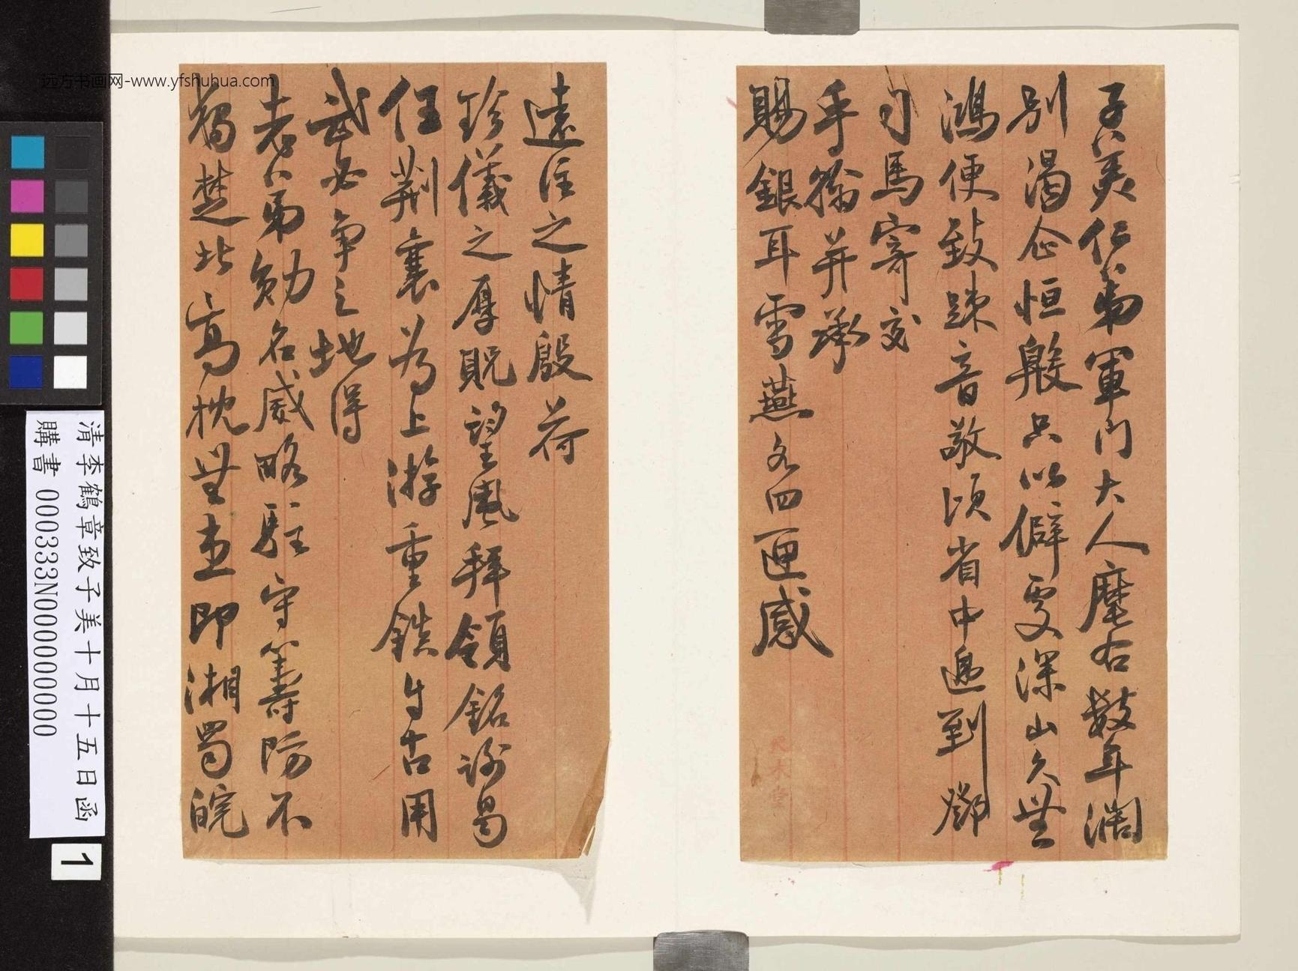 子美仁弟軍門大人麾右數年濶
別渴企恒殷只以僻處深山久無
鴻便致疎音敬頃省中遞到鄧
司馬寄交
手翰并承
賜銀耳雪燕各四匣感
遠注之情殷荷
珍儀之厚貺望風拜領銘謝曷
任荆襄為上游重鎮自古用
武必爭之地得
老弟勋名威略駐守籌防不
獨楚北高枕無患即湘蜀皖
清李鶴章致子美十月十五日函
購書 000333N000000000
1
远方书画网-www.yfshuhua.com